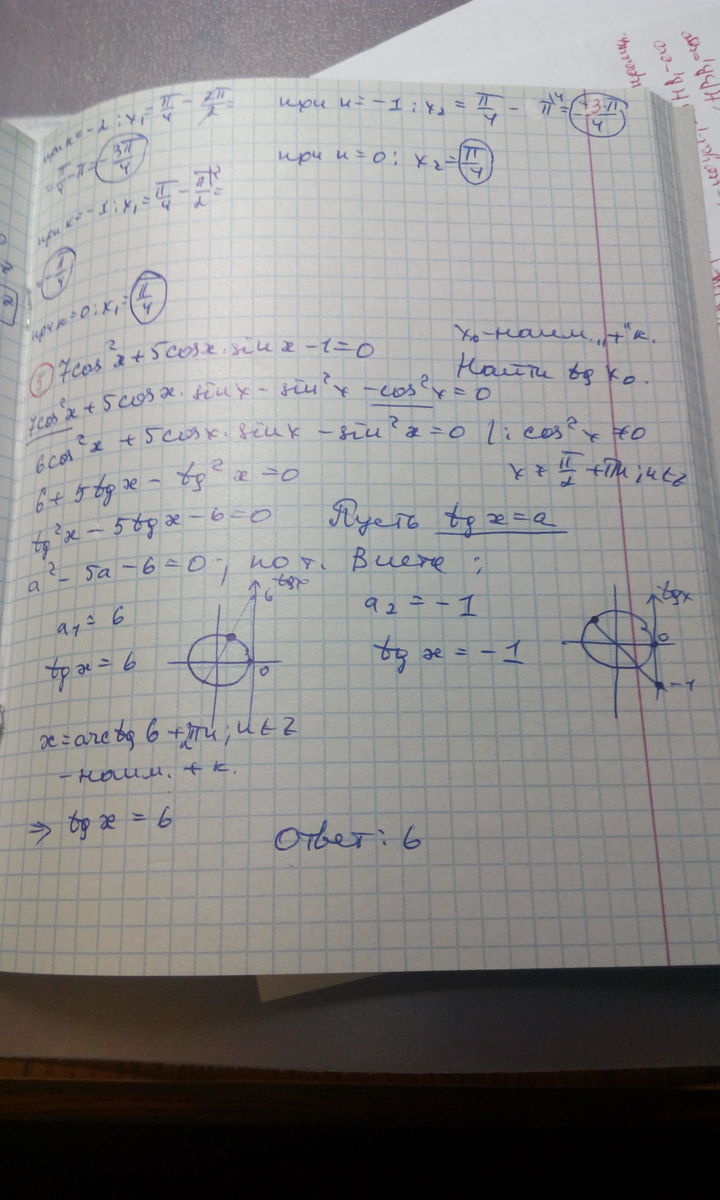 при к=-2: x₁=π/4 - 2π/2=
= π/4 - π = -3π/4
при к=-1: x₁=π/4 - π/2=
= -π/4
при к=0: x₁=π/4
при n=-1: x₂=π/4 - π = -3π/4
при n=0: x₂=π/4
5) 7cos²x + 5cosx·sinx - 1=0
x₀-наим. "+" к.
Найти tg x₀.
7cos²x + 5cosx·sinx - sin²x - cos²x=0
6cos²x + 5cosx·sinx - sin²x=0 |: cos²x≠0
x≠π/2+πn; n∈Z
6+5tgx - tg²x=0
tg²x - 5tgx - 6=0
Пусть tgx=a
a²-5a-6=0; по т. Виета:
a₁=6
a₂=-1
tgx=6
tgx=-1
tgx
6
0
tgx
0
-1
x=arctg6+2πn; n∈Z
-наим. + к.
⇒ tgx=6
Ответ: 6